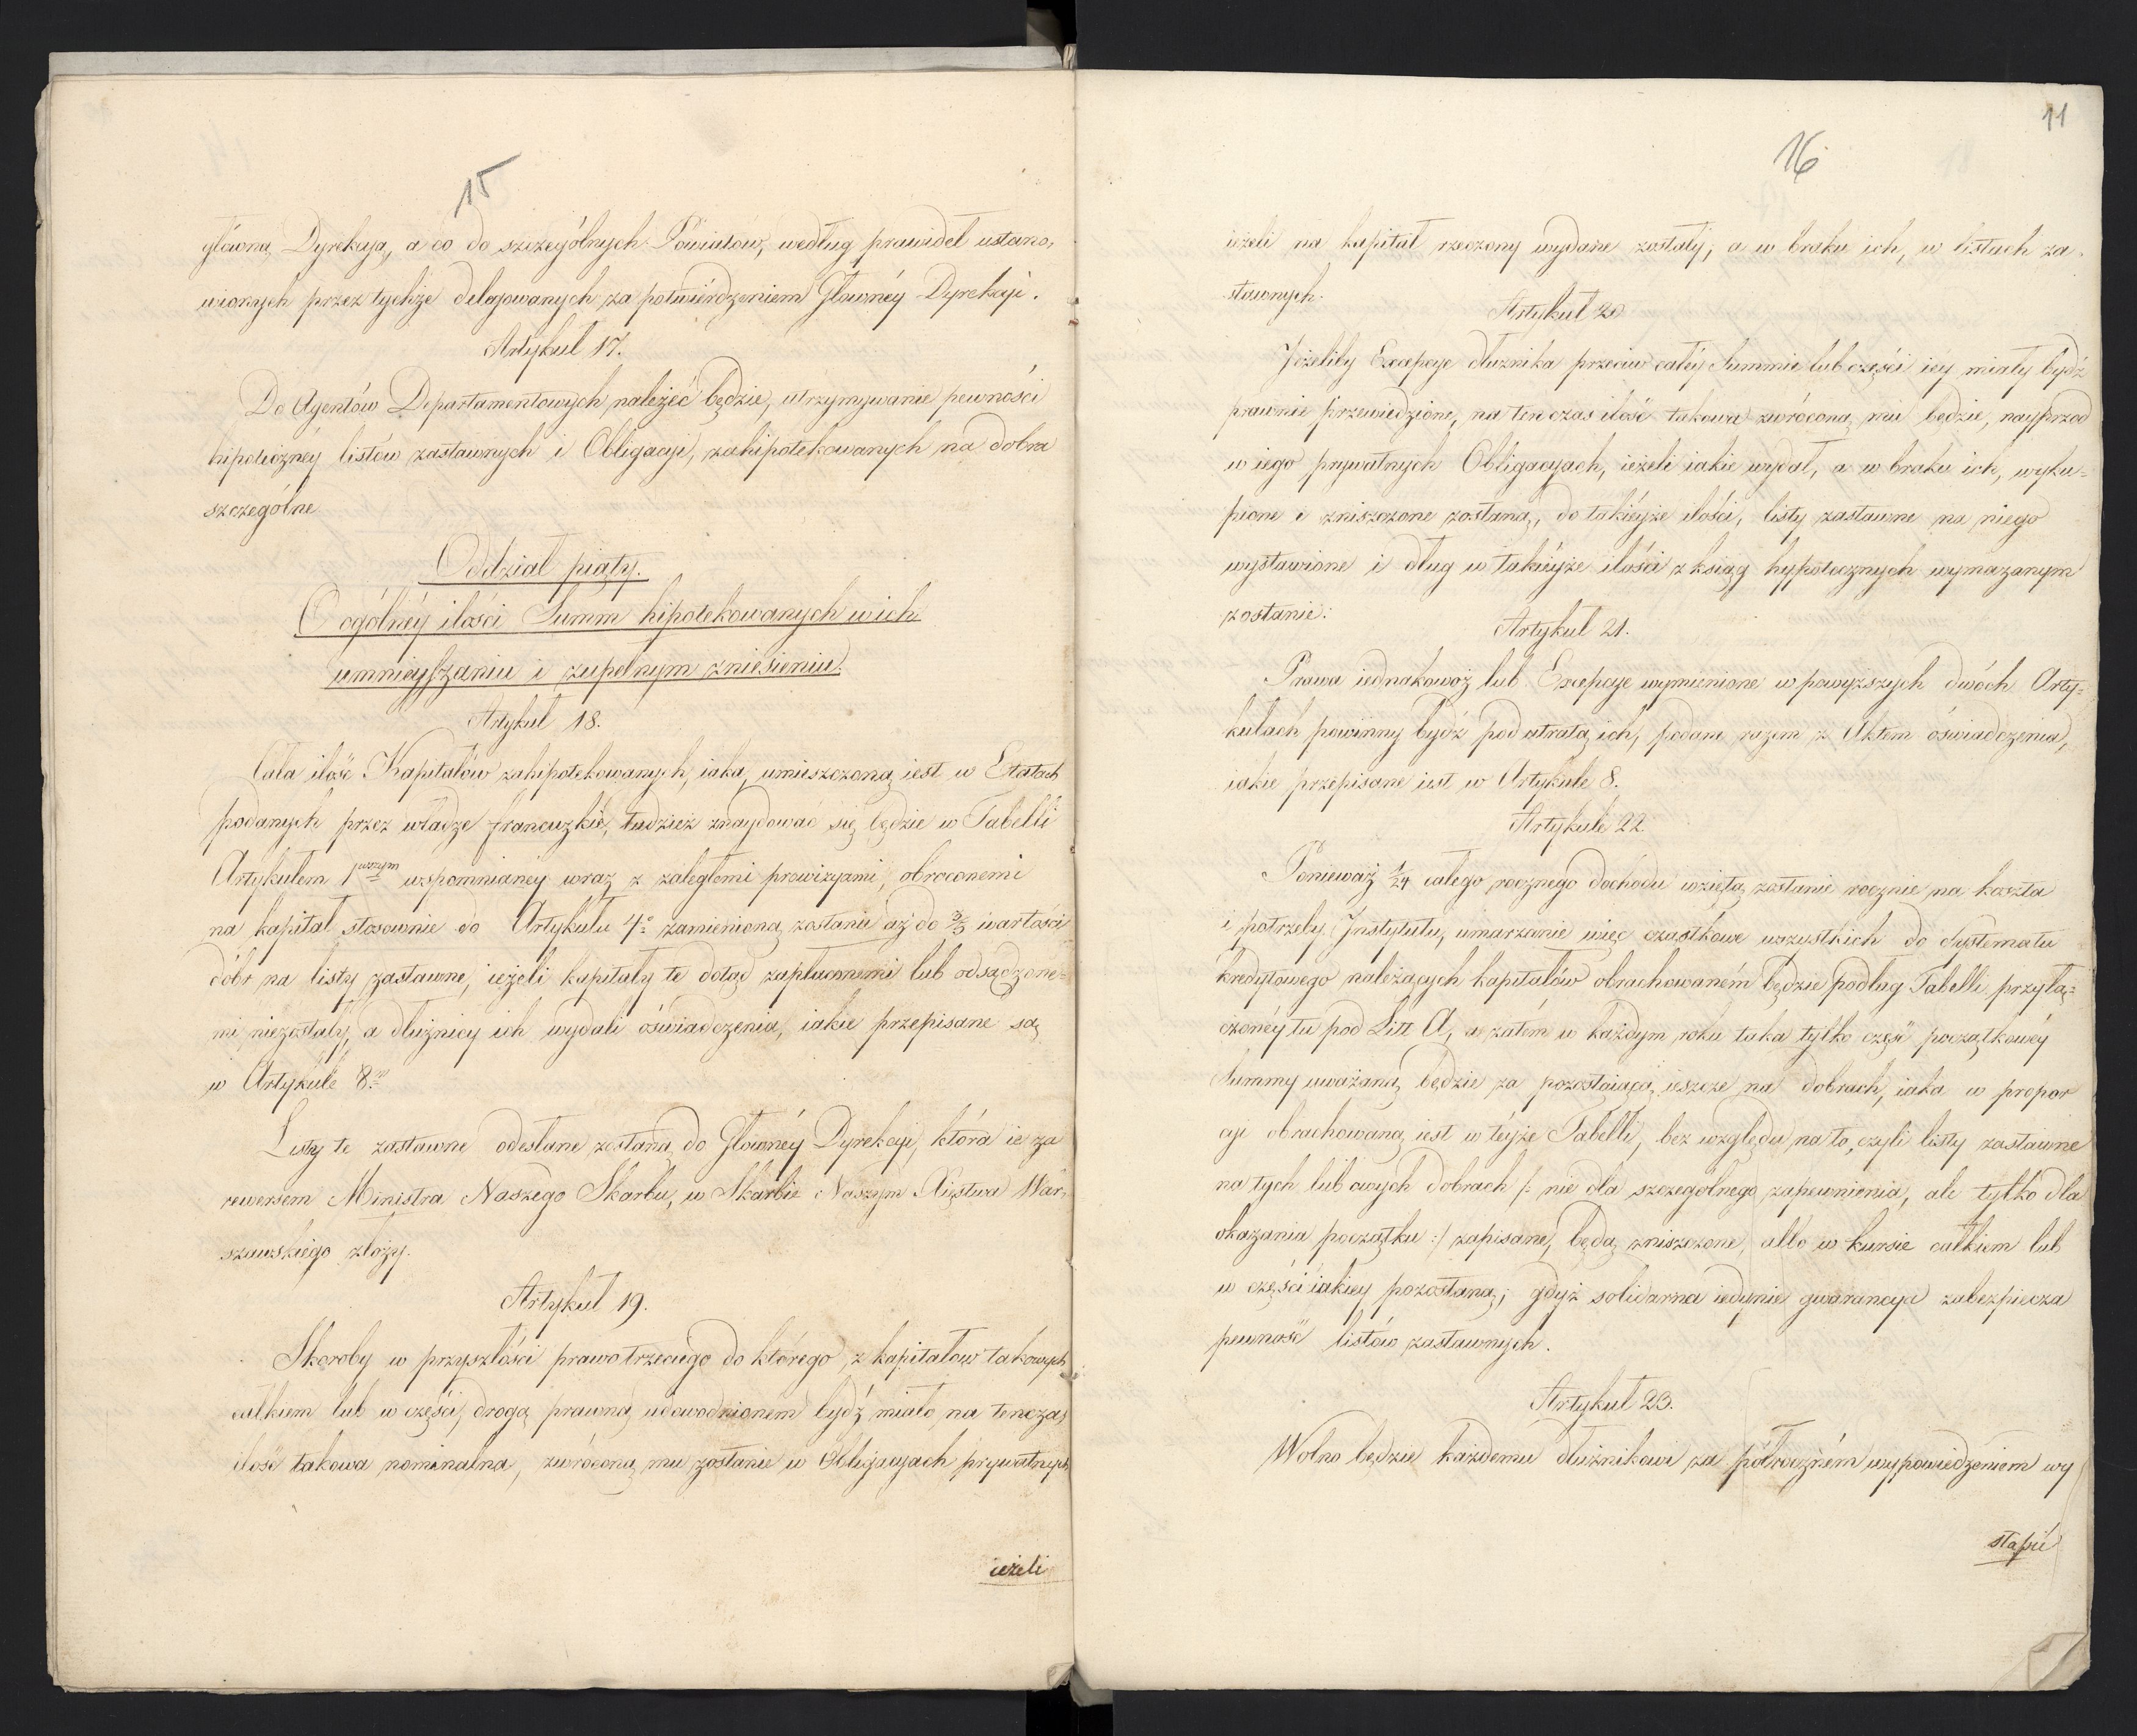 15
główną Dyrekcyą, a co do szczególnych Powiatów, według prawideł ustano,
wionych przez tychże delegowanych za potwierdzeniem Głownéy Dyrekcyi.
Artykuł 17.
Do Agentów Departamentowych należéć będzie, utrzymywanie pewności
hipoteczney listów zastawnych i Obligacyi, zahipotekowanych na dobra
szczególne
Oddział piąty.
O ogólnéy ilości Summ hipotekowanych w ich
umnieyszaniu i zupełnym zniesieniu.
Artykuł 18.
Cała ilość Kapitałów zahipotekowanych, iaka, umieszczoną iest w Etatach
podanych przez władze francuzkie, tudzież znaydować się będzie w Tabelli
Artykułem 1wszym wspomnianey wraz z zaległemi prowizyami, obroconemi
na kapitał stosownie do Artykułu 4o zamienioną zostanie aż do 2/3 wartości
dóbr na listy zastawne, ieżeli kapitały te dotąd zapłaconemi lub odsądzone=
mi niezostały, a dłużnicy ich wydali oświadczenia, iakie przepisane są
w Artykule 8m
Listy te zastawne odesłane zostaną do Głownéy Dyrekcyi, która ie za
rewersem Ministra Naszego Skarbu, w Skarbie Naszym Xięstwa War,
szawskiego złoży.
Artykuł 19.
Skoroby w przyszłości prawo trzeciego do którego z kapitałow takowych
całkiem lub w części, drogą prawną udowodnionem bydź miało, na tenczas,
ilość takowa nominalna, zwróconą mu zostanie w Obligacyach prywatnych
ieżeli
11
16
ieżeli na kapitał rzeczony wydane zostały; a w braku ich, w listach za,
stawnych.
Artykuł 20
Jeżeliby Excepcye dłużnika przeciw całéy Summie lub części iey miały bydź
prawnie przewiedzione, na tenczas ilość takowa zwróconą mu będzie, nayprzod
w iego prywatnych Obligacyach, ieżeli iakie wydał, a w braku ich, wyku=
pione i zniszczone zostaną, do takiéyże ilości, listy zastawne na niego
wystawione i dług w takiéyże ilości z ksiąg hypotecznych wymazanym
zostanie:
Artykuł 21.
Prawa iednakowoż lub Excepcye wymienione w powyższych dwóch Arty=
kułach powinny bydź pod utratą ich, podane razem z Aktem oświadczenia,
iakie przepisane iest w Artykule 8.
Artykule 22.
Ponieważ 1/24 całego rocznego dochodu wziętą zostanie rocznie na koszta
i potrzeby Jnstytutu, umarzanie więc cząstkowe wszystkich do Systematu
kredytowego należących kapitałów obrachowaném będzie podług Tabelli przyłą=
czonéy tu pod Litt A, a zatém w każdym roku taka tylko część początkowéy
Summy uważaną będzie za pozostaiącą ieszcze na dobrach, iaka w propor
cyi obrachowaną iest w téyże Tabelli, bez względu na to, czyli listy zastawne
na tych lub owych dobrach /: nie dla szczegolnego zapewnienia, ale tylko dla
okazania początku :/ zapisane, będą zniszczone, albo w kursie całkiem lub
w części iakiey pozostaną; gdyż solidarna iedynie gwarancya zabezpiecza
pewność listów zastawnych.
Artykuł 23.
Wolno będzie każdemu dłużnikowi za półroczném wypowiedzeniem wy
stąpić